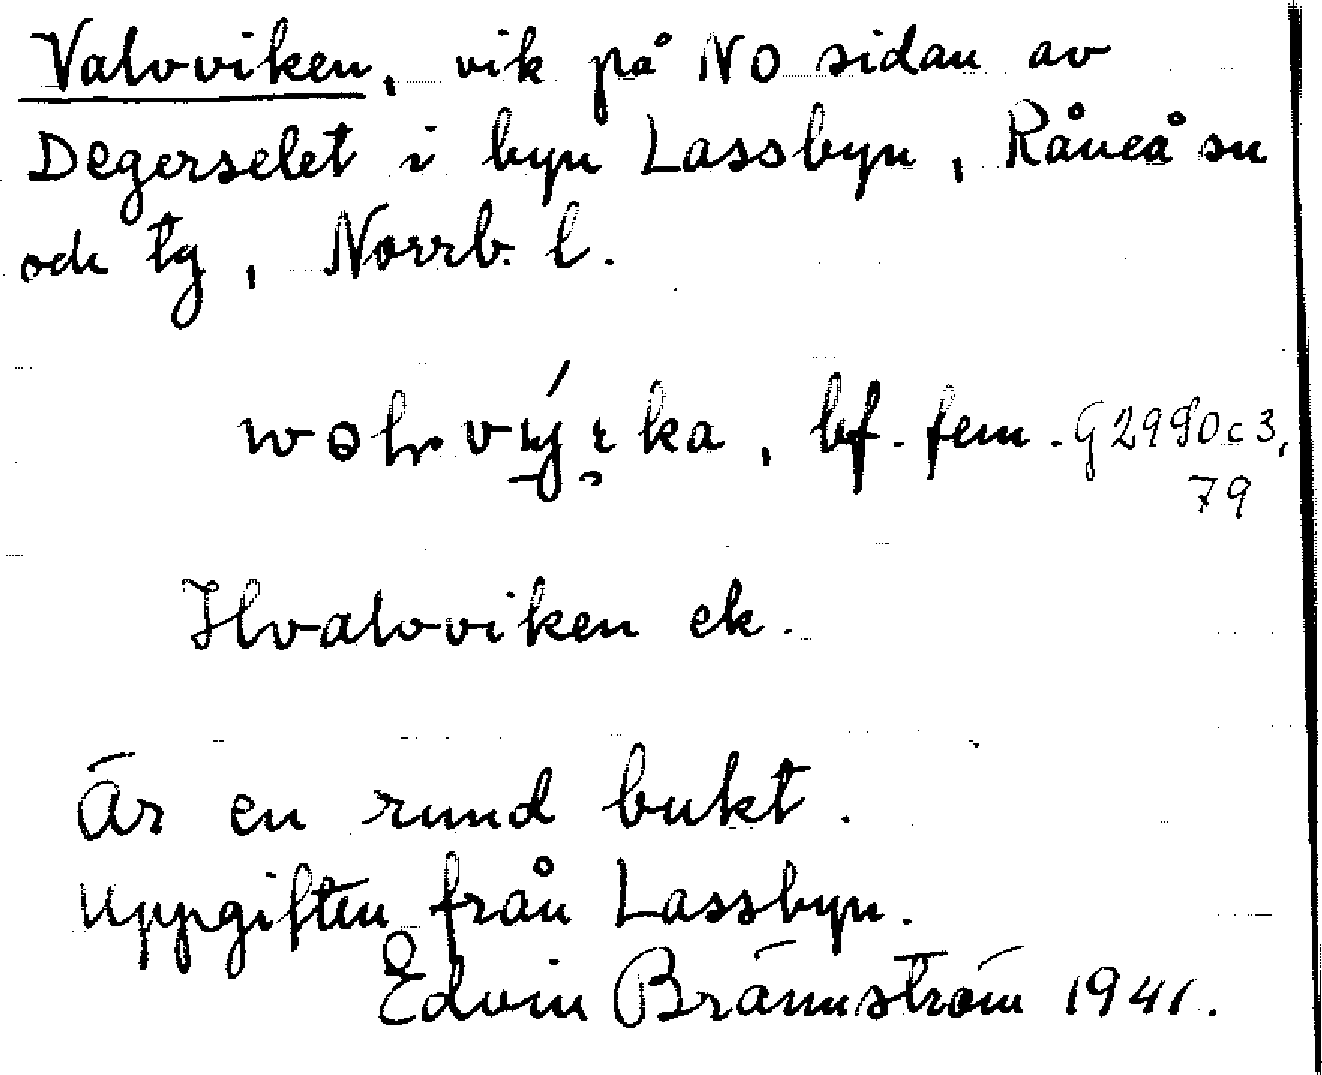 Valvviken, vik på NO sidan av
Degerselet i byn Lassbyn, Råneå sn
och tg, Norrb. l.
bf. fem. G 2990 c 3,
79
Hvalvviken ek.
Är en rund bukt.
Uppgiften från Lassbyn.
Edvin Brännström 1941.